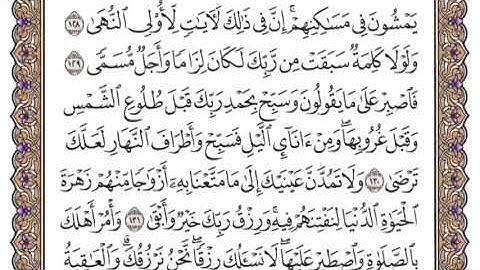 يَمْشُونَ فِى مَسَٰكِنِهِمْ ۗ إِنَّ فِى ذَٰلِكَ لَءَايَٰتٍ لِّأُو۟لِى ٱلنُّهَىٰ ١٢٨
وَلَوْلَا كَلِمَةٌ سَبَقَتْ مِن رَّبِّكَ لَكَانَ لِزَامًا وَأَجَلٌ مُّسَمًّى ١٢٩
فَٱصْبِرْ عَلَىٰ مَا يَقُولُونَ وَسَبِّحْ بِحَمْدِ رَبِّكَ قَبْلَ طُلُوعِ ٱلشَّمْسِ
وَقَبْلَ غُرُوبِهَا ۖ وَمِنْ ءَانَآئِ ٱلَّيْلِ فَسَبِّحْ وَأَطْرَافَ ٱلنَّهَارِ لَعَلَّكَ
تَرْضَىٰ ١٣٠ وَلَا تَمُدَّنَّ عَيْنَيْكَ إِلَىٰ مَا مَتَّعْنَا بِهِۦٓ أَزْوَٰجًا مِّنْهُمْ زَهْرَةَ
ٱلْحَيَوٰةِ ٱلدُّنْيَا لِنَفْتِنَهُمْ فِيهِ ۚ وَرِزْقُ رَبِّكَ خَيْرٌ وَأَبْقَىٰ ١٣١ وَأْمُرْ أَهْلَكَ
بِٱلصَّلَوٰةِ وَٱصْطَبِرْ عَلَيْهَا ۖ لَا نَسْـَٔلُكَ رِزْقًا ۖ نَّحْنُ نَرْزُقُكَ ۗ وَٱلْعَٰقِبَةُ